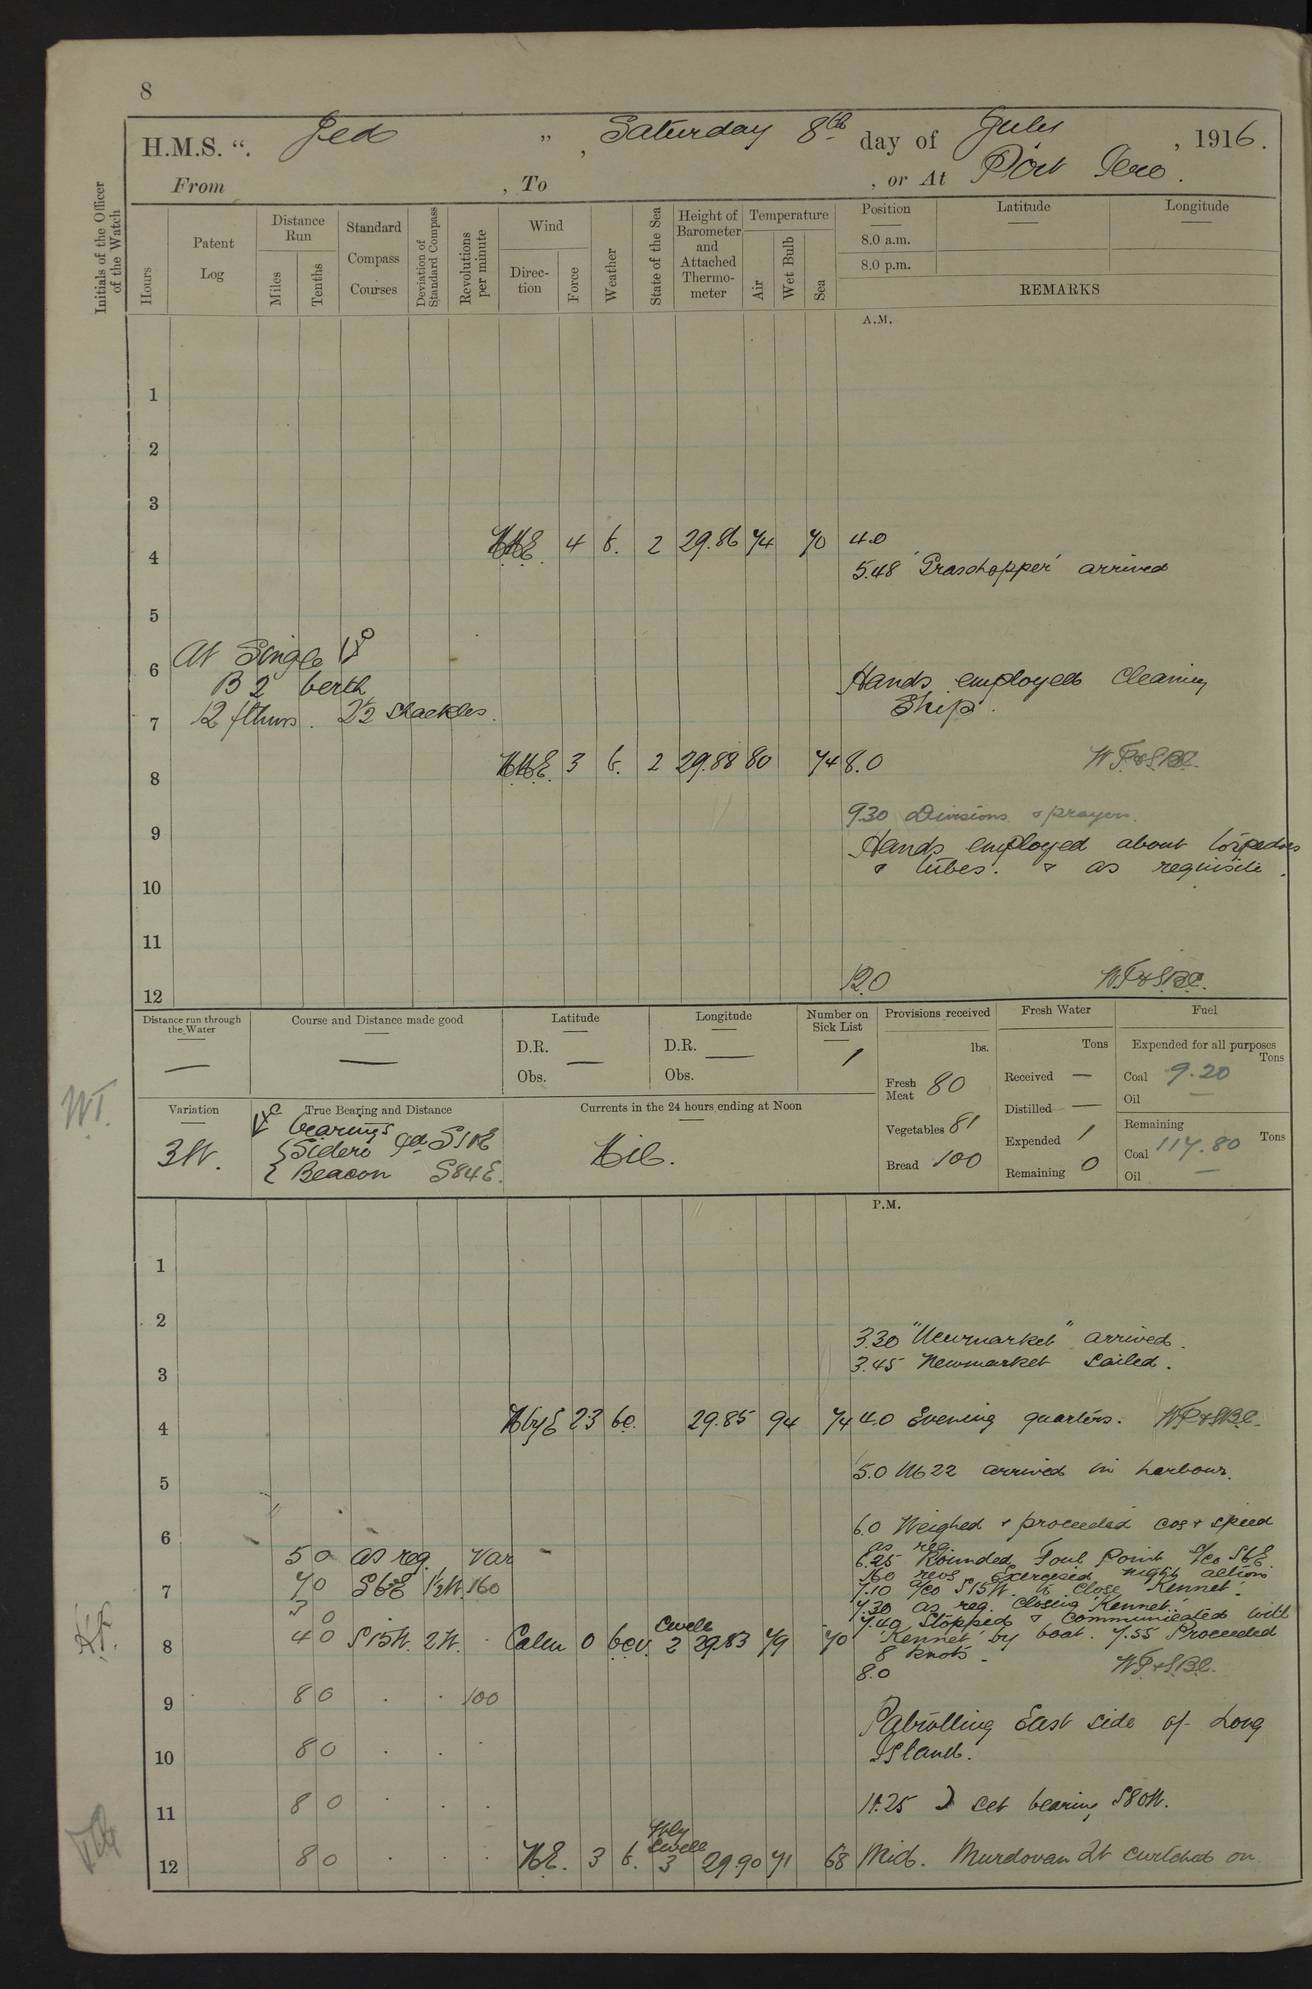 8
H.M.S. “ Jed ” , Saturday 8th day of July , 1916.
From , To , or At Port Iero.
Initials of the Officer of the Watch
Hours
Patent Log
Distance Run
Miles
Tenths
Standard Compass Courses
Deviation of Standard Compass
Revolutions per minute
Wind
Direc-tion
Force
Weather
State of the Sea
Height of Barometer and Attached Thermo-meter
Temperature
Air
Wet Bulb
Sea
Position
8.0 a.m.
8.0 p.m.
Latitude
Longitude
REMARKS
A.M.
1
2
3
4 NNE. 4 b. 2 29.86 74 70 4.0
5.48 'Grasshopper' arrived
5
At Single
6
B 2 berth
Hands employed cleaning
Ship.
7 12 fthms. 2½ shackles.
8 NNE. 3 b. 2 29.88 80 74 8.0
9.30 Divisions & prayers.
9
Hands employed about torpedoes
& tubes. & as requisite.
10
11
12 12.0
Distance run through the Water
—
Course and Distance made good
—
Latitude
D.R. —
Obs.
Longitude
D.R. —
Obs.
Number on Sick List
1
Provisions received
lbs.
Fresh Meat 80
Vegetables 81
Bread 100
Fresh Water
Tons
Received —
Distilled —
Expended 1
Remaining 0
Fuel
Expended for all purposes
Tons
Coal 9.20
Oil —
Remaining
Tons
Coal 117.80
Oil —
Variation
3W.
True Bearing and Distance
bearings
Sidero S11E
Beacon S84E.
Currents in the 24 hours ending at Noon
Nil.
P.M.
1
2
3.30 "Newmarket" arrived.
3.45 Newmarket sailed.
3
4 NbyE 23 bc. 29.85 94 74 4.0 Evening quarters.
5.0 M622 arrived in harbour.
5
6
6.0 Weighed & proceeded cos & speed
as req.
5 0 as req. Var
6.25 Rounded Foul Point a/co SbE.
160 revs Exercised night action
7 7 0 SbE ½W. 160
7.10 a/co S15W. to close 'Kennet'.
3 0
7.30 as req. closing 'Kennet'.
7.40 Stopped & communicated with
8 4 0 S15W. 2W. Calm 0 bcv. Swell 2 29.83 79 70
'Kennet' by boat. 7.55 Proceeded
8 knots.
8.0
9 8 0 100
Patrolling East side of Long
Island.
10 8 0
11 8 0
11.25 ☽ set bearing S80W.
12 8 0 NE. 3 b. Nly Swell 3 29.90 71 68 Mid. Murdovan Lt switched on